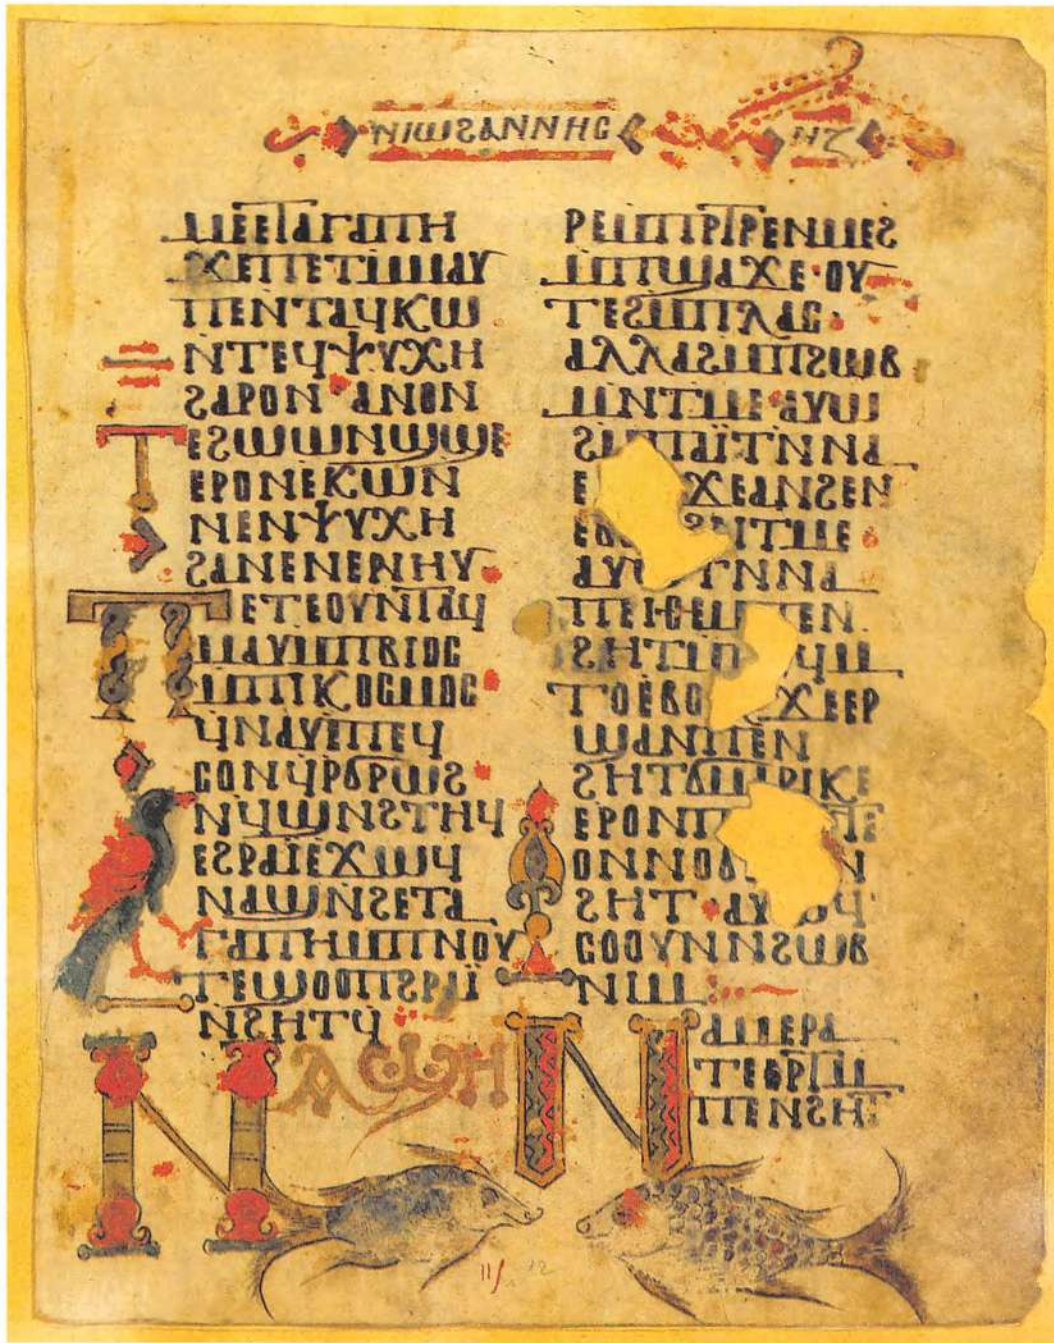 ⲛⲓⲱϩⲁⲛⲛⲏⲥ ⲛⲍ
ⲙⲉⲉⲧⲁⲅⲁⲡⲏ
ϫⲉⲡⲉⲧⲙⲙⲁⲩ
ⲡⲉⲛⲧⲁϥⲕⲱ
ⲛⲧⲉϥⲯⲩⲭⲏ
ϩⲁⲣⲟⲛ·ⲁⲛⲟⲛ
ⲧⲉϩⲱⲱⲛϣϣⲉ
ⲉⲣⲟⲛⲉⲕⲱⲛ
ⲛⲉⲛⲯⲩⲭⲏ
ϩⲁⲛⲉⲛⲉⲣⲏⲩ·
ⲡⲉⲧⲉⲟⲩⲛⲧⲁϥ
ⲙⲙⲁⲩⲙⲡⲃⲓⲟⲥ
ⲙⲡⲓⲕⲟⲥⲙⲟⲥ·
ϥⲛⲁⲩⲉⲡⲉϥ
ⲥⲟⲛϥⲣϭⲣⲱϩ·
ⲛϥϣⲛϩⲧⲏϥ
ⲉϩⲣⲁⲓ̈ⲉϫⲱϥ
ⲛⲁϣⲛϩⲉⲧⲁ
ⲅⲁⲡⲏⲙⲡⲛⲟⲩ
ⲧⲉϣⲟⲟⲡϩⲣⲁⲓ̈
ⲛϩⲏⲧϥ
ⲛⲁϣⲏ
ⲣⲉⲙⲡⲣⲧⲣⲉⲛⲙⲉϩ
ⲙⲡϣⲁϫⲉ·ⲟⲩ
ⲧⲉϩⲙⲡⲗⲁⲥ·
ⲁⲗⲗⲁϩⲙⲡϩⲱⲃ
ⲙⲛⲧⲙⲉ·ⲁⲩⲱ
ϩⲙⲡⲁⲓ̈ⲧⲛⲛⲁ
ϫⲉⲁⲛϩⲉⲛ
ⲧⲙⲉ·
ⲁⲩⲱⲧⲛⲛⲁ
ϩⲏⲧⲙ
ⲧⲟⲉⲃⲟⲗ ϫⲉⲉⲣ
ϣⲁⲛⲡⲉⲛ
ϩⲏⲧϭⲛⲁⲣⲓⲕⲉ
ⲉⲣⲟⲛ
ϩⲏⲧ·ⲁⲩⲱϥ
ⲥⲟⲟⲩⲛⲛϩⲱⲃ
ⲛⲓⲙ
ⲛⲁⲙⲉⲣⲁ
ⲧⲉⲉⲣⲧⲙ
ⲡⲉⲛϩⲏⲧ